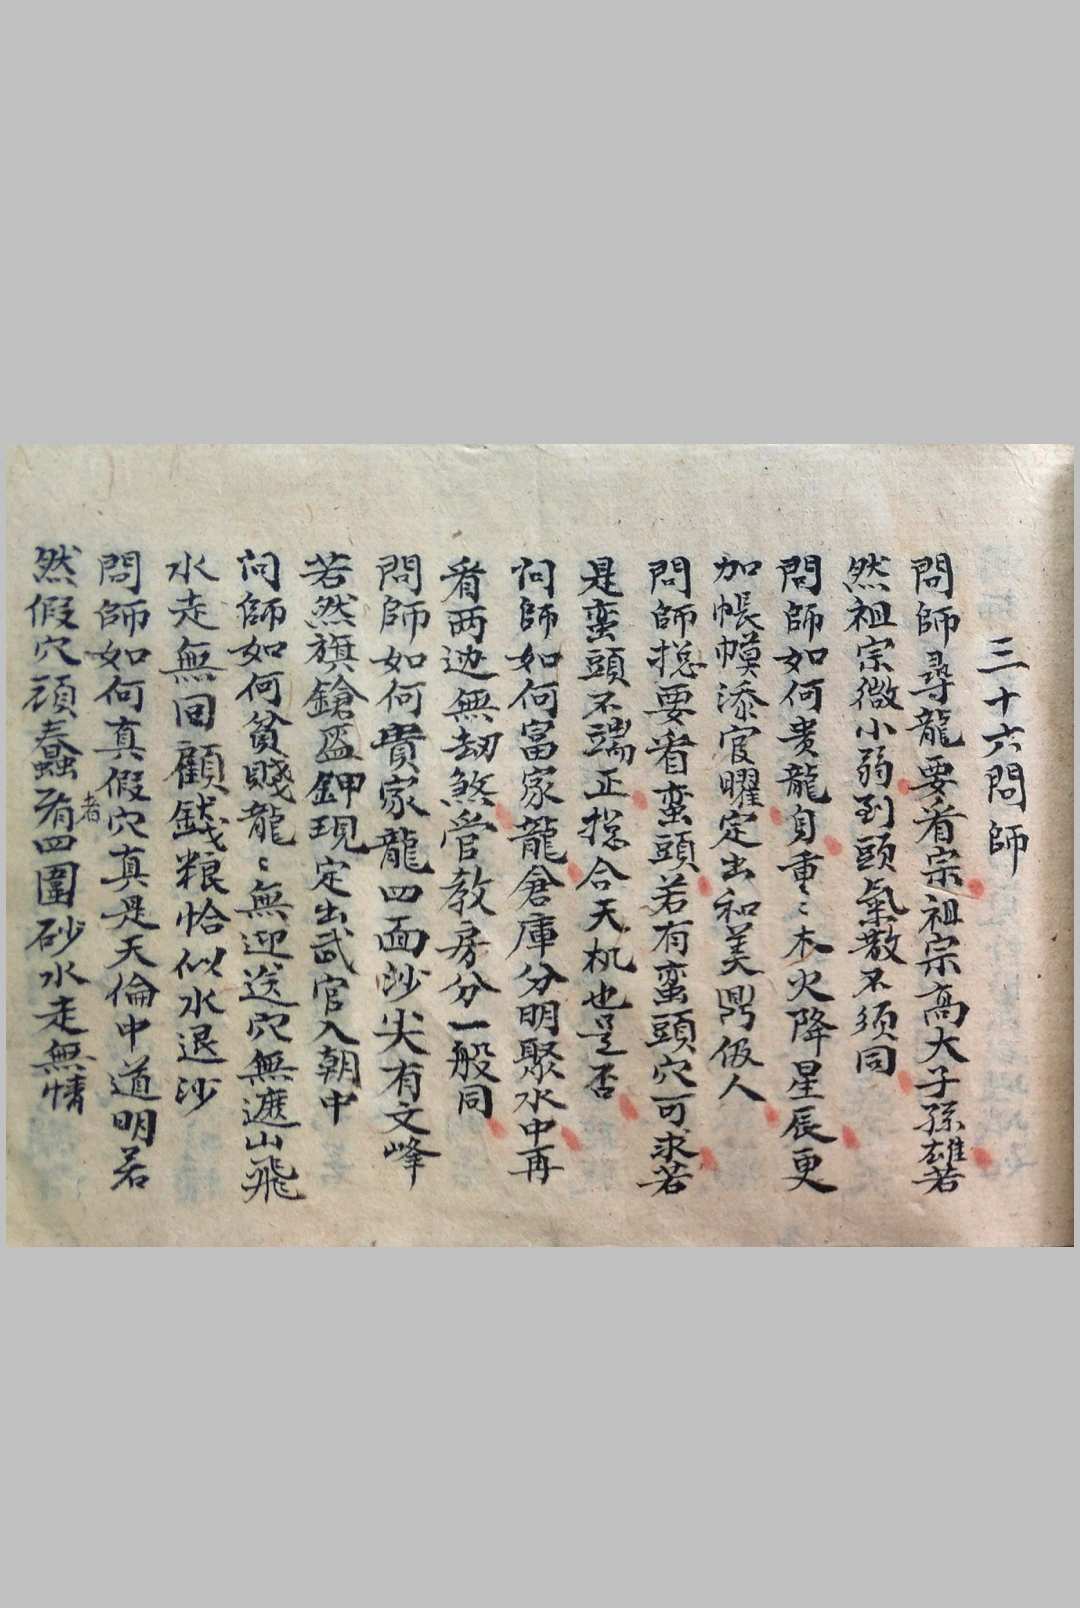 三十六問師
問師尋龍要看宗祖宗高大子孫雄若
然祖宗微小弱到頭氣散不須同
問師如何贵龍身重〻木火降星辰更
加帳幙添官曜定出和美鼎伋人
問師捴要看蛮頭若有蛮頭穴可求若
是蛮頭不端正捴合天机也是否
问師如何富家龍倉庫分明聚水中再
看两边無刼煞管教房分一般同
問師如何貴家龍四面沙尖有文峰
若然旗鎗盔鉀現定出武官入朝中
问師如何貧賤龍〻無迎送穴無遮山飛
水走無回顧錢粮恰似水退沙
問師如何真假穴真是天倫中道明若
然假穴頑蠢者有四圍砂水走無情